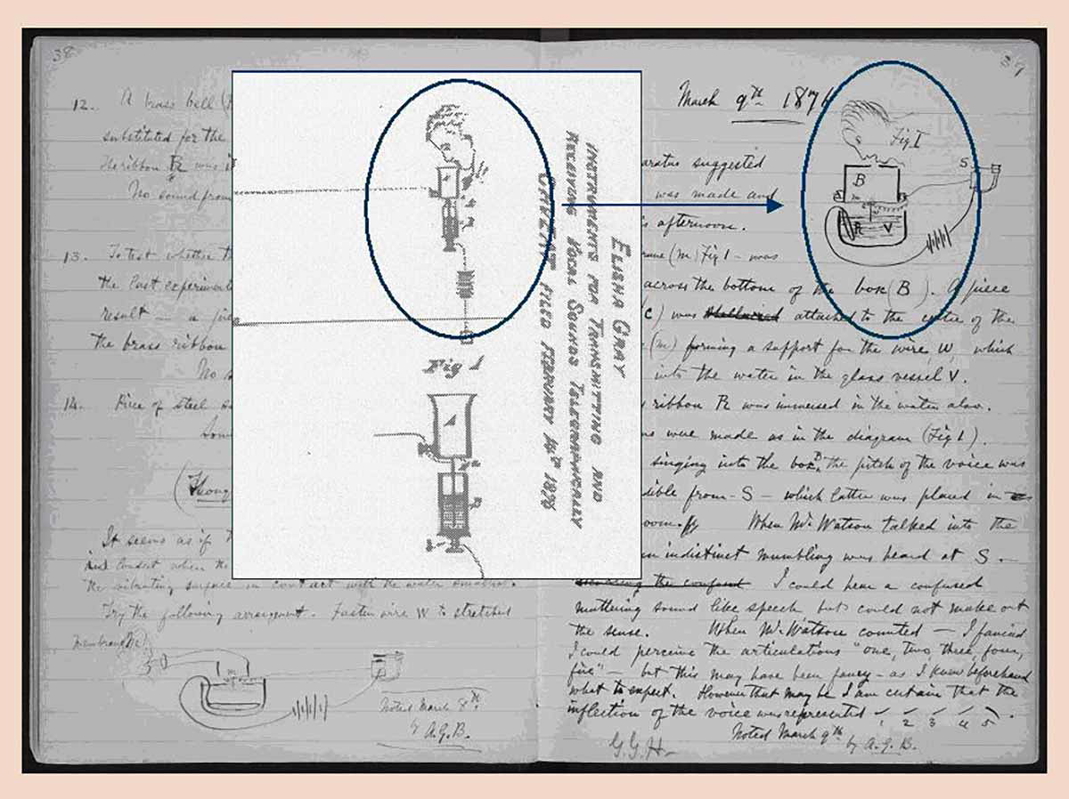 38
12. A brass bell
substituted for the
the ribbon R was
No sound from
13. To test whether
the last experiment
result — a
the brass ribbon
No
14. Piece of steel
It seems as if
and consent when the
the vibrating surface in contact with the water
Try the following arrangement. Fasten wire W to stretched
membrane
Noted March 8th
by A.G.B.
ELISHA GRAY
INSTRUMENTS FOR TRANSMITTING AND
RECEIVING VOCAL SOUNDS TELEGRAPHICALLY
CAVEAT FILED FEBRUARY 14TH 1876
Fig 1
39
March 9th 1876
Fig I
B
S
m
R V
suggested
was made and
afternoon.
(m) Fig 1 - was
across the bottom of the box (B). A piece
was attached to the centre of the
(m) forming a support for the wire W, which
into the water in the glass vessel V.
ribbon R was immersed in the water also.
were made as in the diagram (Fig 1).
singing into the box, the pitch of the voice was
from - S - which latter was placed in
When Mr. Watson talked into the
indistinct mumbling was heard at S.
the confused I could hear a confused
muttering sound like speech but could not make out
the sense. When Mr. Watson counted — I fancied
I could perceive the articulations "one, two, three, four,
five" — but this may have been fancy - as I knew beforehand
what to expect. However that may be I am certain that the
inflection of the voice was represented
1 2 3 4 5
G.G.H.
Noted March 9th by A.G.B.